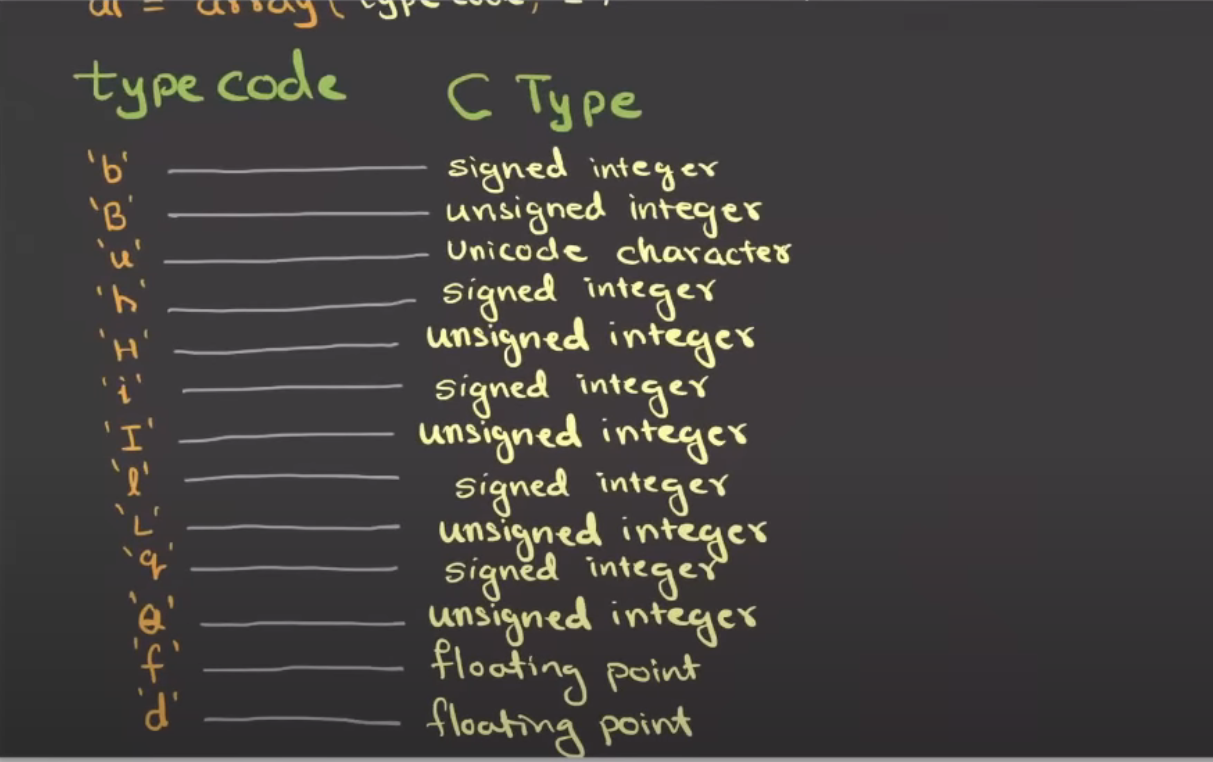 al = array( typecode,
typecode C Type
'b' signed integer
'B' unsigned integer
'u' Unicode character
'h' signed integer
'H' unsigned integer
'i' signed integer
'I' unsigned integer
'l' signed integer
'L' unsigned integer
'q' signed integer
'Q' unsigned integer
'f' floating point
'd' floating point